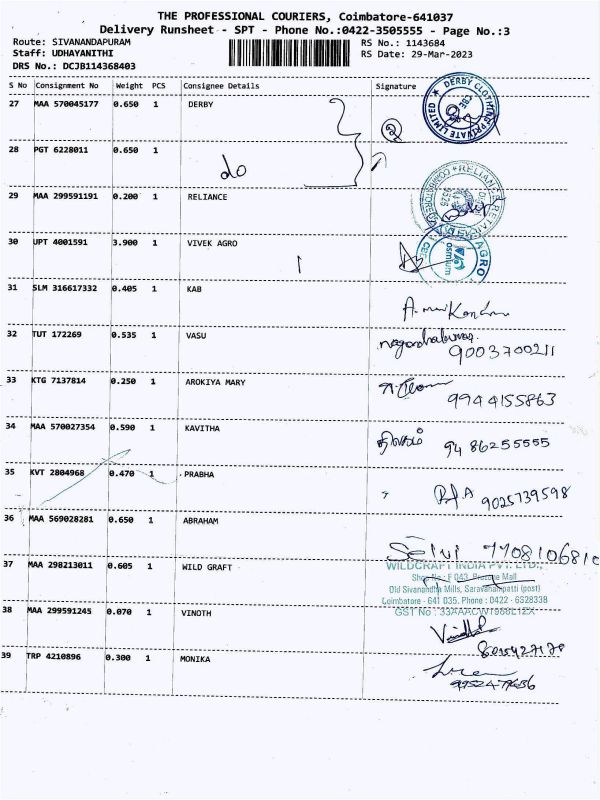 THE PROFESSIONAL COURIERS, Coimbatore-641037
Delivery Runsheet - SPT - Phone No.:0422-3505555 - Page No.:3
Route: SIVANANDAPURAM RS No.: 1143684
Staff: UDHAYANITHI RS Date: 29-Mar-2023
DRS No.: DCJB114368403
S No Consignment No Weight PCS Consignee Details Signature
27 MAA 570045177 0.650 1 DERBY
DERBY CLOTHING PRIVATE LIMITED
28 PGT 6228011 0.650 1 do
29 MAA 299591191 0.200 1 RELIANCE
30 UPT 4001591 3.900 1 VIVEK AGRO
osmium
31 SLM 316617332 0.405 1 KAB
32 TUT 172269 0.535 1 VASU
9003700211
33 KTG 7137814 0.250 1 AROKIYA MARY
9944155863
34 MAA 570027354 0.590 1 KAVITHA
9486255555
35 KVT 2804968 0.470 1 PRABHA
9025739598
36 MAA 569028281 0.650 1 ABRAHAM
Selvi 7708106810
37 MAA 298213011 0.605 1 WILD GRAFT
WILDCRAFT INDIA PVT. LTD.,
Shop No : F 043, Prozone Mall
Old Sivanandha Mills, Saravanampatti (post)
Coimbatore - 641 035. Phone : 0422 - 6328338
38 MAA 299591245 0.070 1 VINOTH
Vinoth
39 TRP 4210896 0.300 1 MONIKA